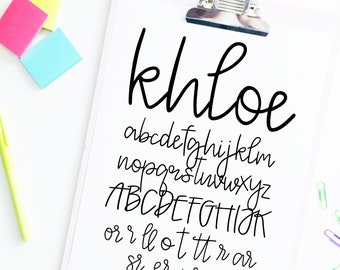 khloe
abcdefghijklm
nopqrstuvwxyz
ABCDEFGHIJK
or r ll o t tt r ar
sr er